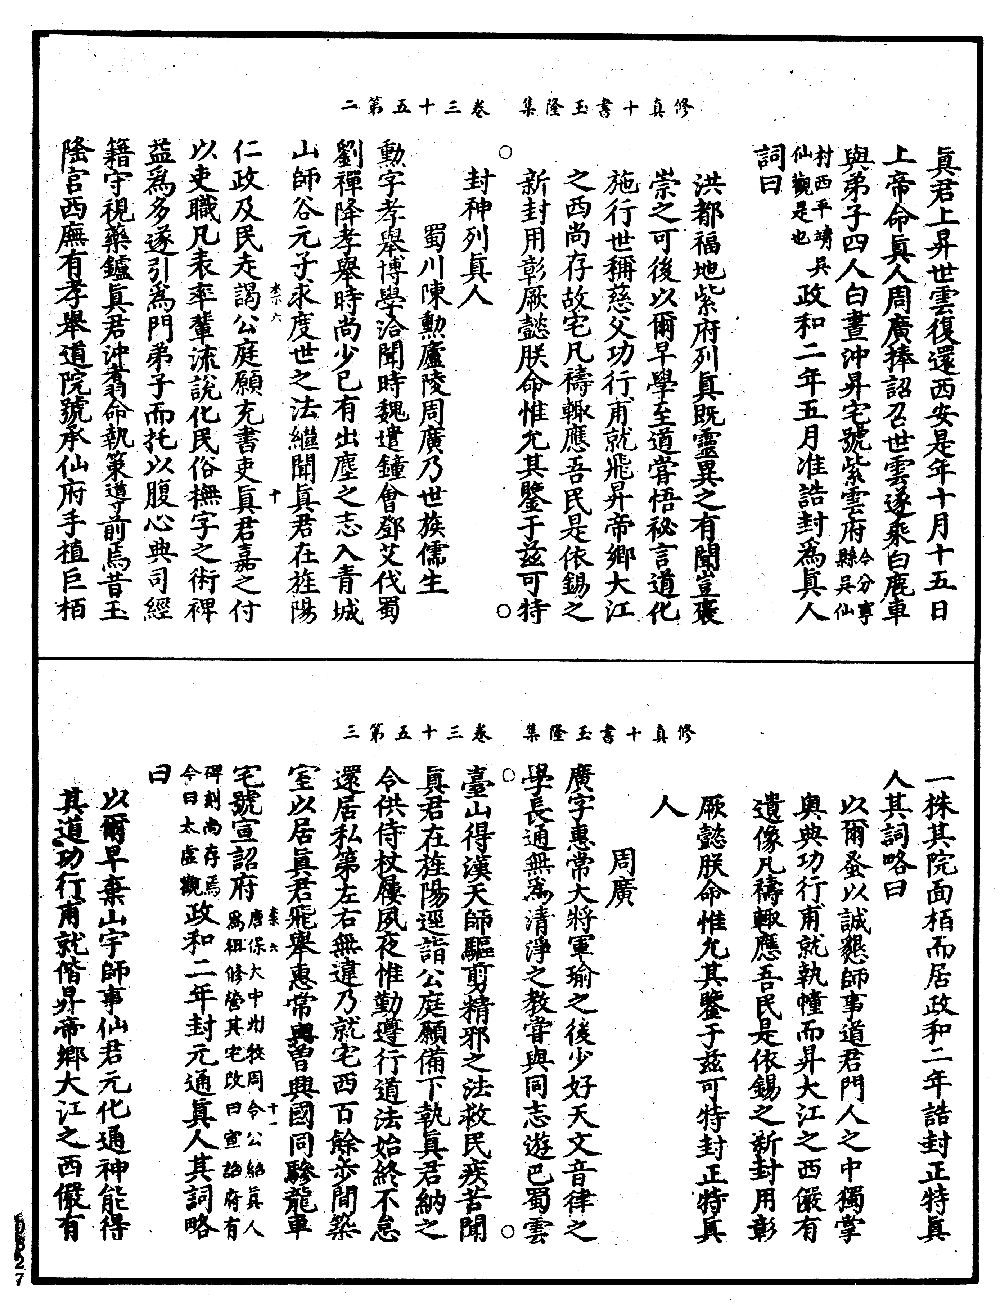 修真十書玉隆集　卷三十五第二
眞君上昇世雲復還西安是年十月十五日
上帝命眞人周廣捧詔召世雲遂乘白鹿車
與弟子四人白晝沖昇宅號紫雲府今分寧縣吳仙
村西平靖吳仙觀是也政和二年五月准誥封爲眞人
詞曰
洪都福地紫府列眞既靈異之有聞豈褒
崇之可後以爾早學至道嘗悟秘言道化
施行世稱慈父功行甫就飛昇帝鄉大江
之西尚存故宅凡禱輙應吾民是依錫之
新封用彰厥懿朕命惟允其鑒于兹可特
封神列眞人
蜀川陳勳廬陵周廣乃世族儒生
勳字孝舉博學洽聞時魏遣鐘會鄧艾代蜀
劉禪降孝舉時尚少已有出塵之志入青城
山師谷元子求度世之法繼聞眞君在旌陽
仁政及民走謁公庭願充書吏眞君嘉之付
以吏職凡表率輩流說化民俗撫字之術裨
益爲多遂引爲門弟子而托以腹心典司經
籍守視藥鑪眞君沖翥命執策導前焉昔玉
隆宮西廡有孝舉道院號承仙府手植巨栢
修真十書玉隆集　卷三十五第三
一株其院面栢而居政和二年誥封正特眞
人其詞略曰
以爾蚤以誠懇師事道君門人之中獨掌
奥典功行甫就執幢而昇大江之西儼有
遺像凡禱輙應吾民是依錫之新封用彰
厥懿朕命惟允其鑒于兹可特封正特眞
人
周廣
廣字惠常大將軍瑜之後少好天文音律之
學長通無爲清淨之教嘗與同志遊巴蜀雲
臺山得漢天師驅剪精邪之法救民疾苦聞
眞君在旌陽逕詣公庭願備下執眞君納之
令供侍杖屨夙夜惟勤遵行道法始終不怠
還居私第左右無違乃就宅西百餘步間築
室以居眞君飛舉惠常與曾興國同驂龍車
宅號宣詔府唐保大中州牧周令公紿眞人爲祖修營其宅改曰宣詔府有
碑刻尚存焉今曰太虛觀政和二年封元通眞人其詞略
曰
以爾早棄山宇師事仙君元化通神能得
其道功行甫就偕昇帝鄉大江之西儼有